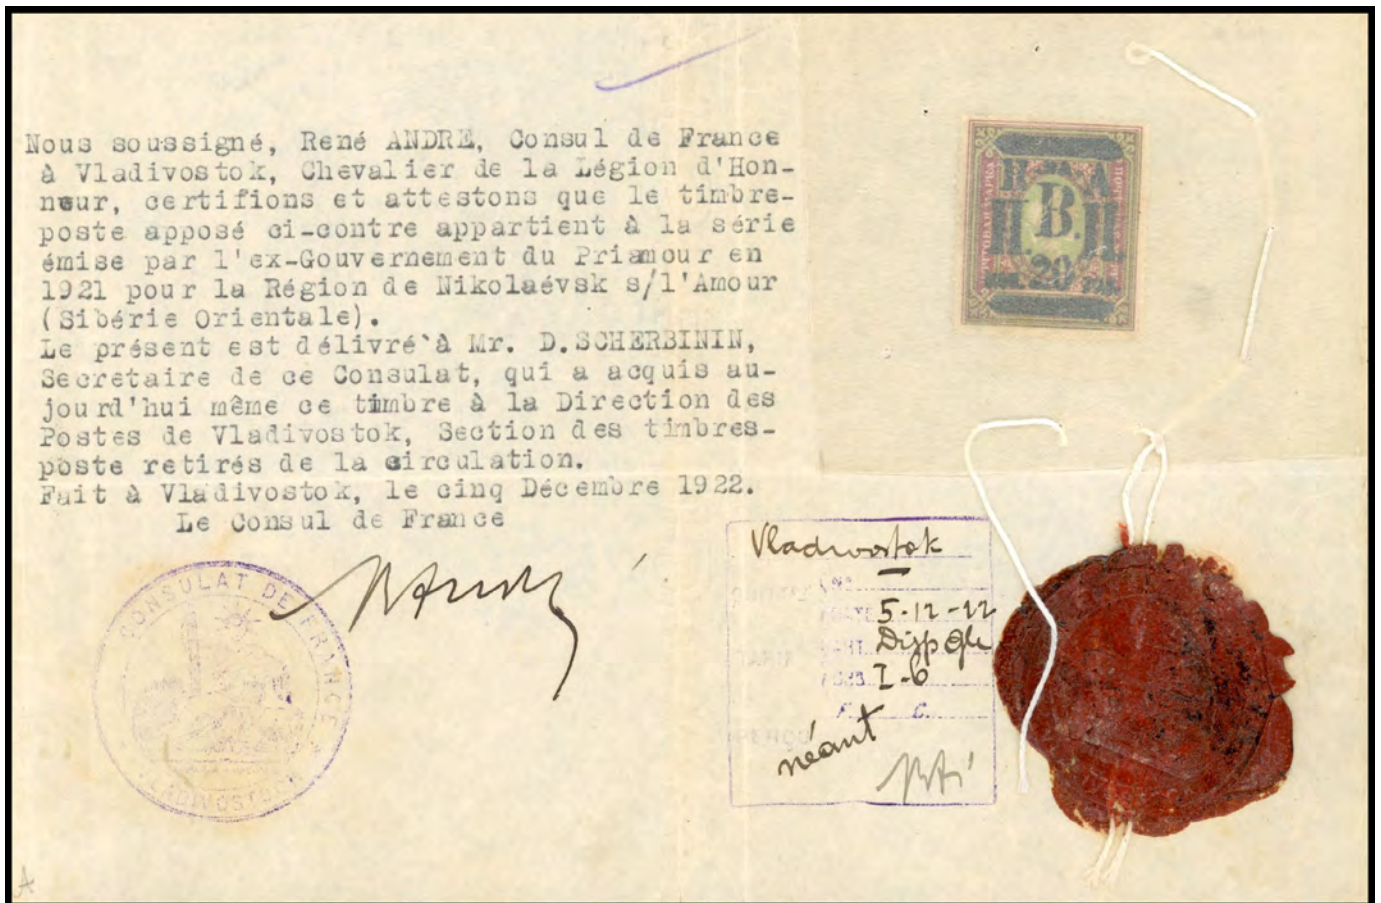 Nous soussigné, René ANDRE, Consul de France
à Vladivostok, Chevalier de la Légion d'Hon-
neur, certifions et attestons que le timbre-
poste apposé ci-contre appartient à la série
émise par l'ex-Gouvernement du Priamour en
1921 pour la Région de Nikolaévsk s/l'Amour
(Sibérie Orientale).
Le présent est délivré à Mr. D.SCHERBININ,
Secretaire de ce Consulat, qui a acquis au-
jourd'hui même ce timbre à la Direction des
Postes de Vladivostok, Section des timbres-
poste retirés de la circulation.
Fait à Vladivostok, le cinq Décembre 1922.
Le Consul de France
CONSULAT DE FRANCE
VLADIVOSTOCK
ПОЧТОВАЯ МАРКА
Н А
В.
П.
20
Vladivostok
5-12-22
I-6
F. C.
néant
A